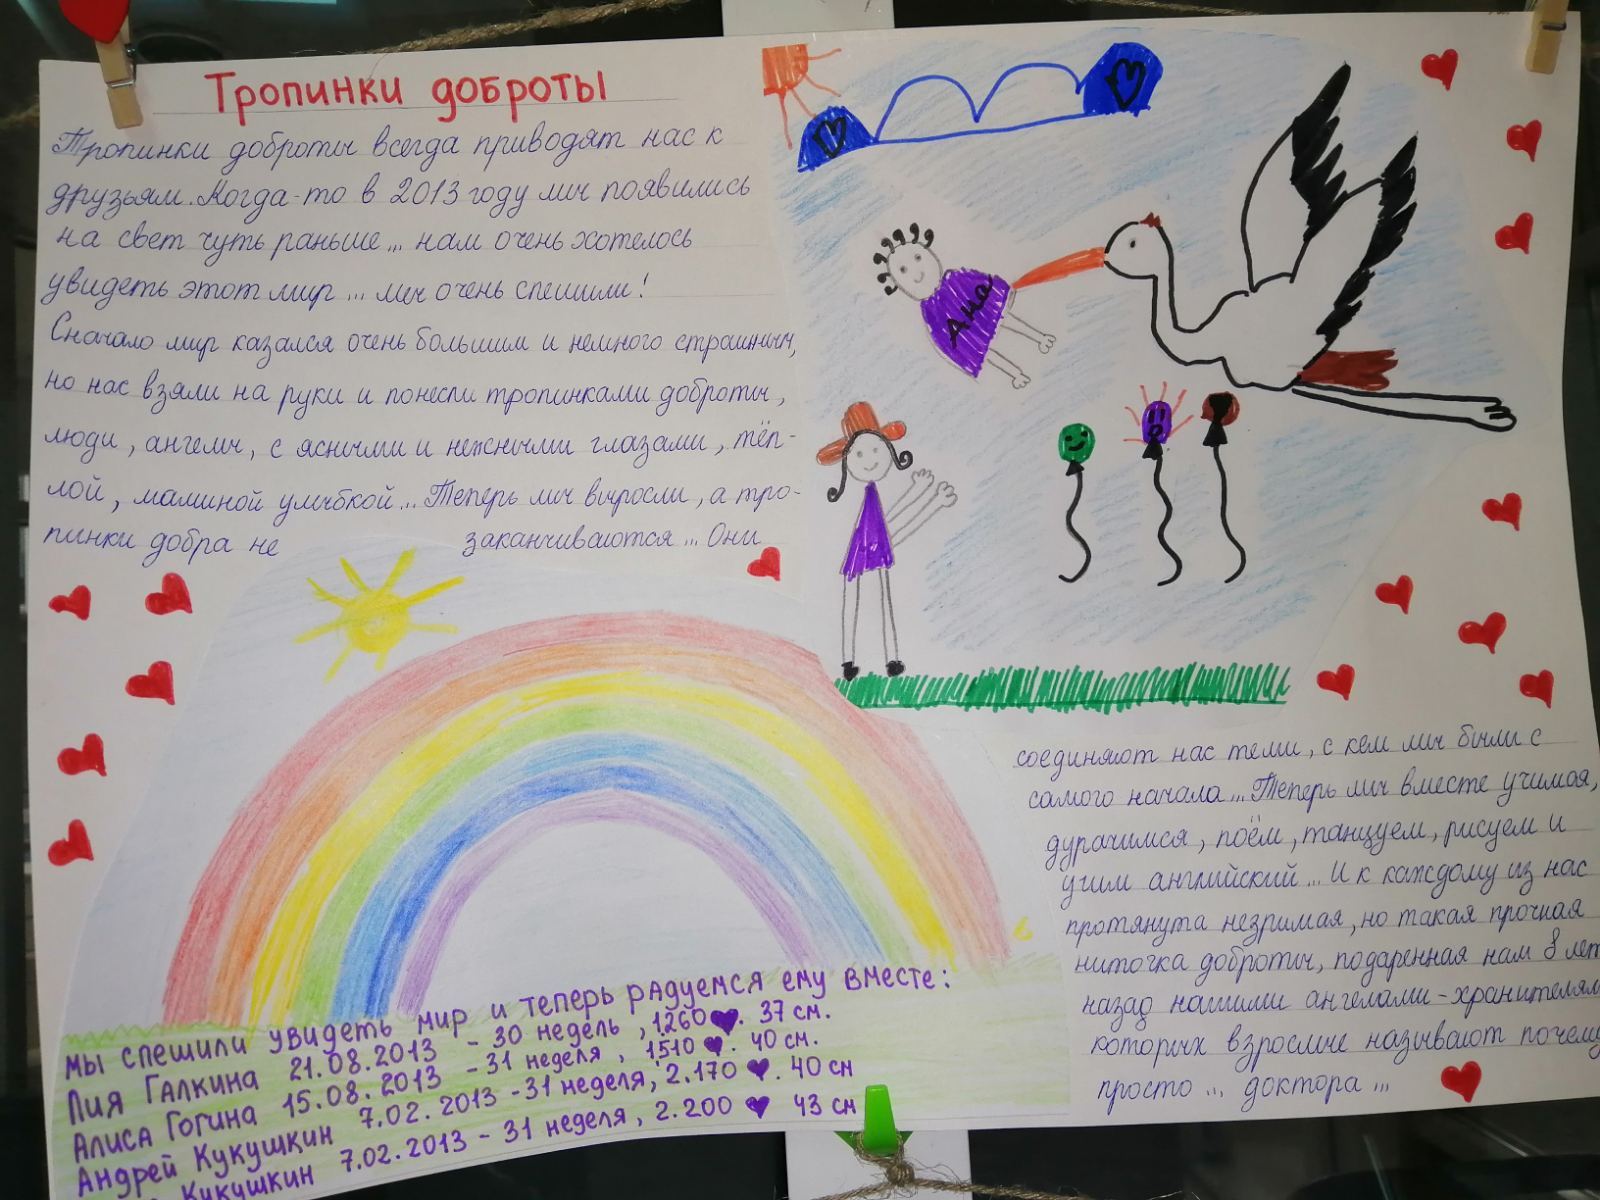 Тропинки доброты
Тропинки доброты всегда приводят нас к
друзьям. Когда-то в 2013 году мы появились
на свет чуть раньше... нам очень хотелось
увидеть этот мир... мы очень спешили!
Сначало мир казался очень большим и немного страшным,
но нас взяли на руки и понесли тропинками доброты,
люди, ангелы, с ясными и нежными глазами, тёп-
лой, маминой улыбкой... Теперь мы выросли, а тро-
пинки добра не заканчиваются... Они
Ана
соединяют нас теми, с кем мы были с
самого начала... Теперь мы вместе учимся,
дурачимся, поём, танцуем, рисуем и
учим английский... И к каждому из нас
протянута незримая, но такая прочная
ниточка доброты, подаренная нам 8 лет
назад нашими ангелами-хранителям
которых взрослые называют почему
просто... доктора...
мы спешили увидеть мир и теперь радуемся ему вместе:
Лия Галкина 21.08.2013 - 30 недель, 1260. 37 см.
Алиса Гогина 15.08.2013 - 31 неделя, 1510. 40 см.
Андрей Кукушкин 7.02.2013 - 31 неделя, 2.170. 40 см
Кукушкин 7.02.2013 - 31 неделя, 2.200 43 см